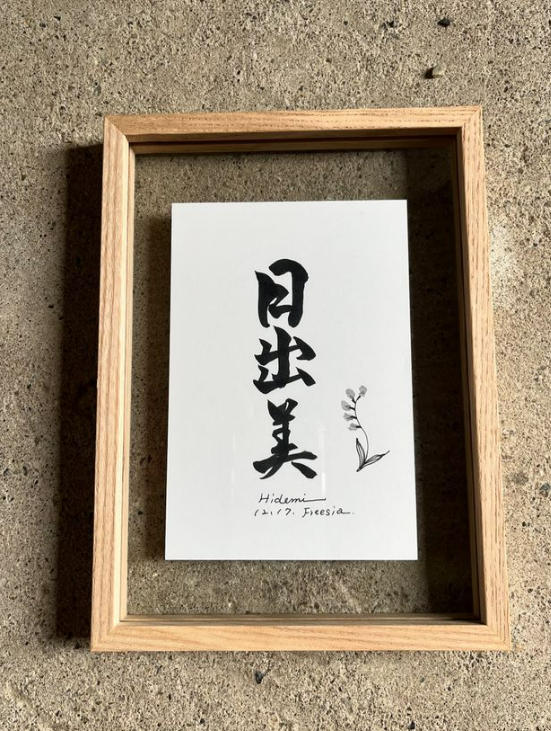 日出美
Hidemi
12.17. Freesia.